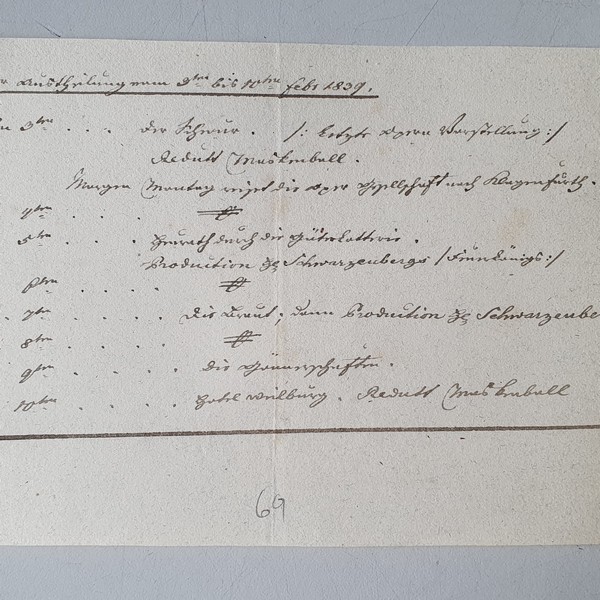 Austheilung vom 3ten bis 10ten Febr 1839.
3ten . . . der Schwur . /: Letzte Opern Vorstellung :/
Redutt Maskenball .
Morgen Montag reiset die Oper Gesellschaft nach Klagenfurth .
4ten . . .
5ten . . . Heurath durch die Güterlotterie .
Production Schwarzenbergs /: Feuerkönigs :/
6ten . . . .
7ten . . . . Die Braut, dann Production
8ten . . . .
9ten . . . . die Gönnerschaften .
10ten . . . . Hotel Weilburg . Redutt Maskenball
69